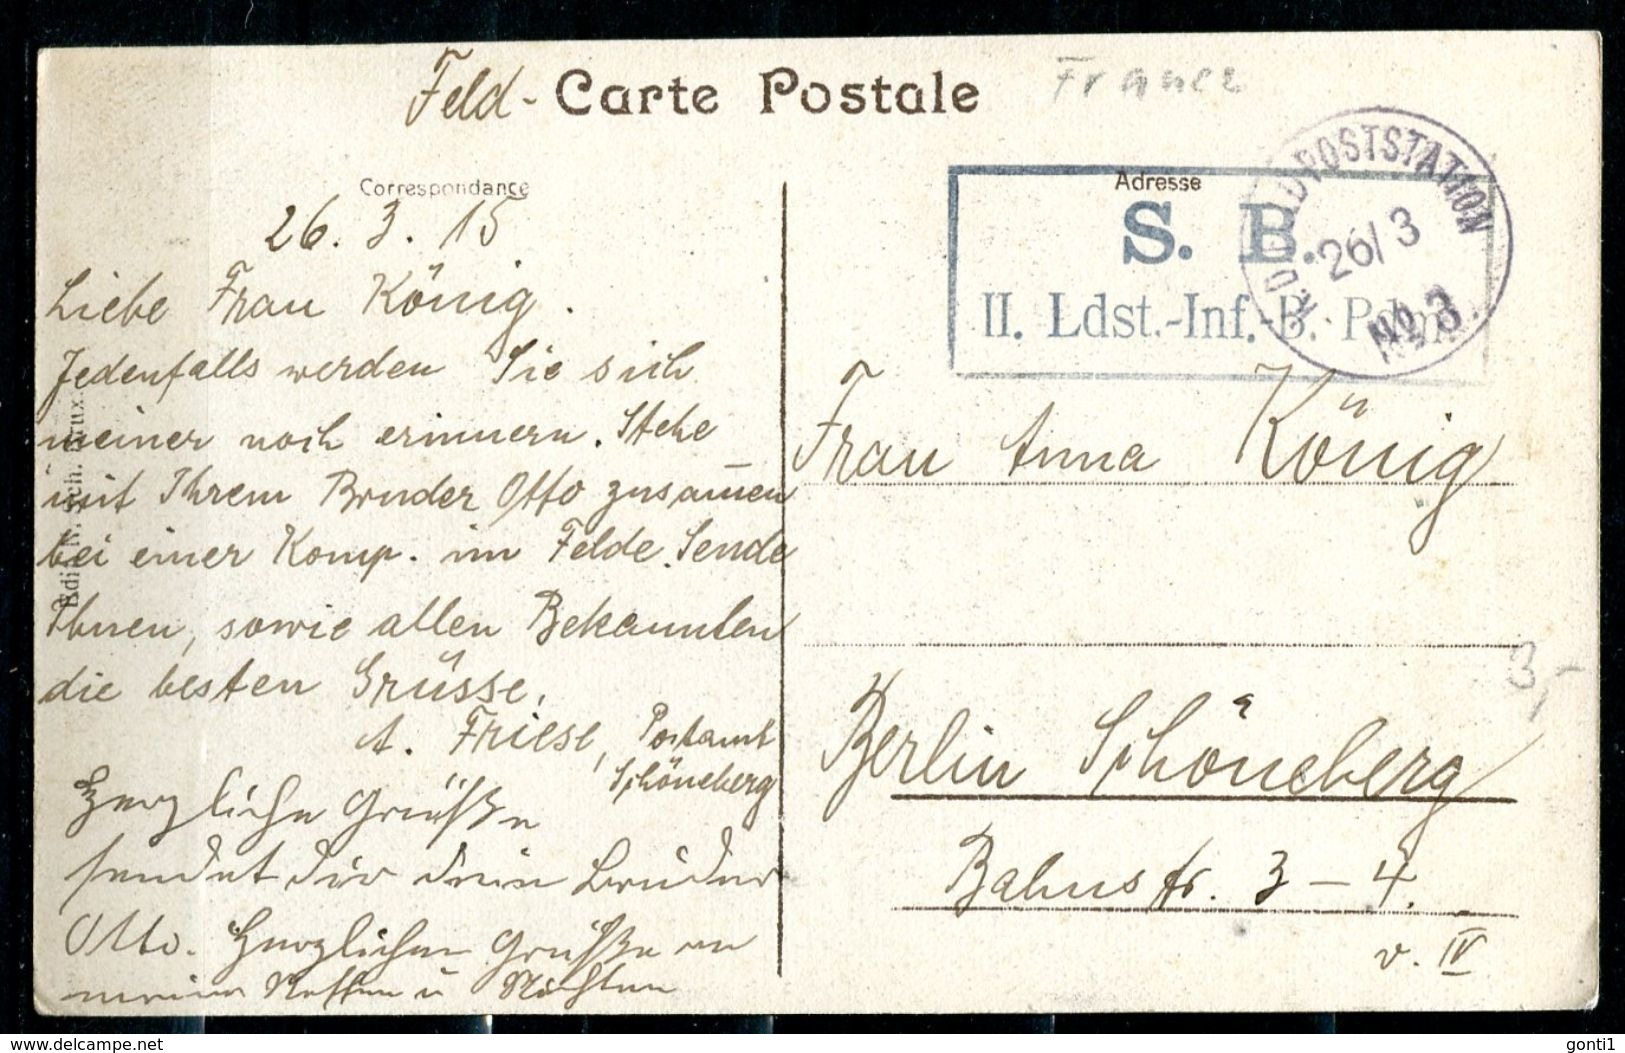 Feld- Carte Postale
Franz
Correspondance
26. 3. 15
Liebe Frau König.
Jedenfalls werden Sie sich
meiner noch erinnern. Stehe
mit Ihrem Bruder Otto zusam̅en
bei einer Komp. im Felde. Sende
Ihnen, sowie allen Bekannten
die besten Grüsse,
A. Friese, Postamt
Schöneberg
Herzliche Grüße
sendet dir dein Bruder
Otto. Herzlichen Grüße an
meine Neffen u Nichten
Adresse
S. B.
II. Ldst.-Inf.-B.
K.D. FELDPOSTSTATION
26/3
No 3
Frau Anna König
Berlin Schöneberg
Bahnstr. 3 – 4.
v. IV
3,-
www.delcampe.net
gonti1